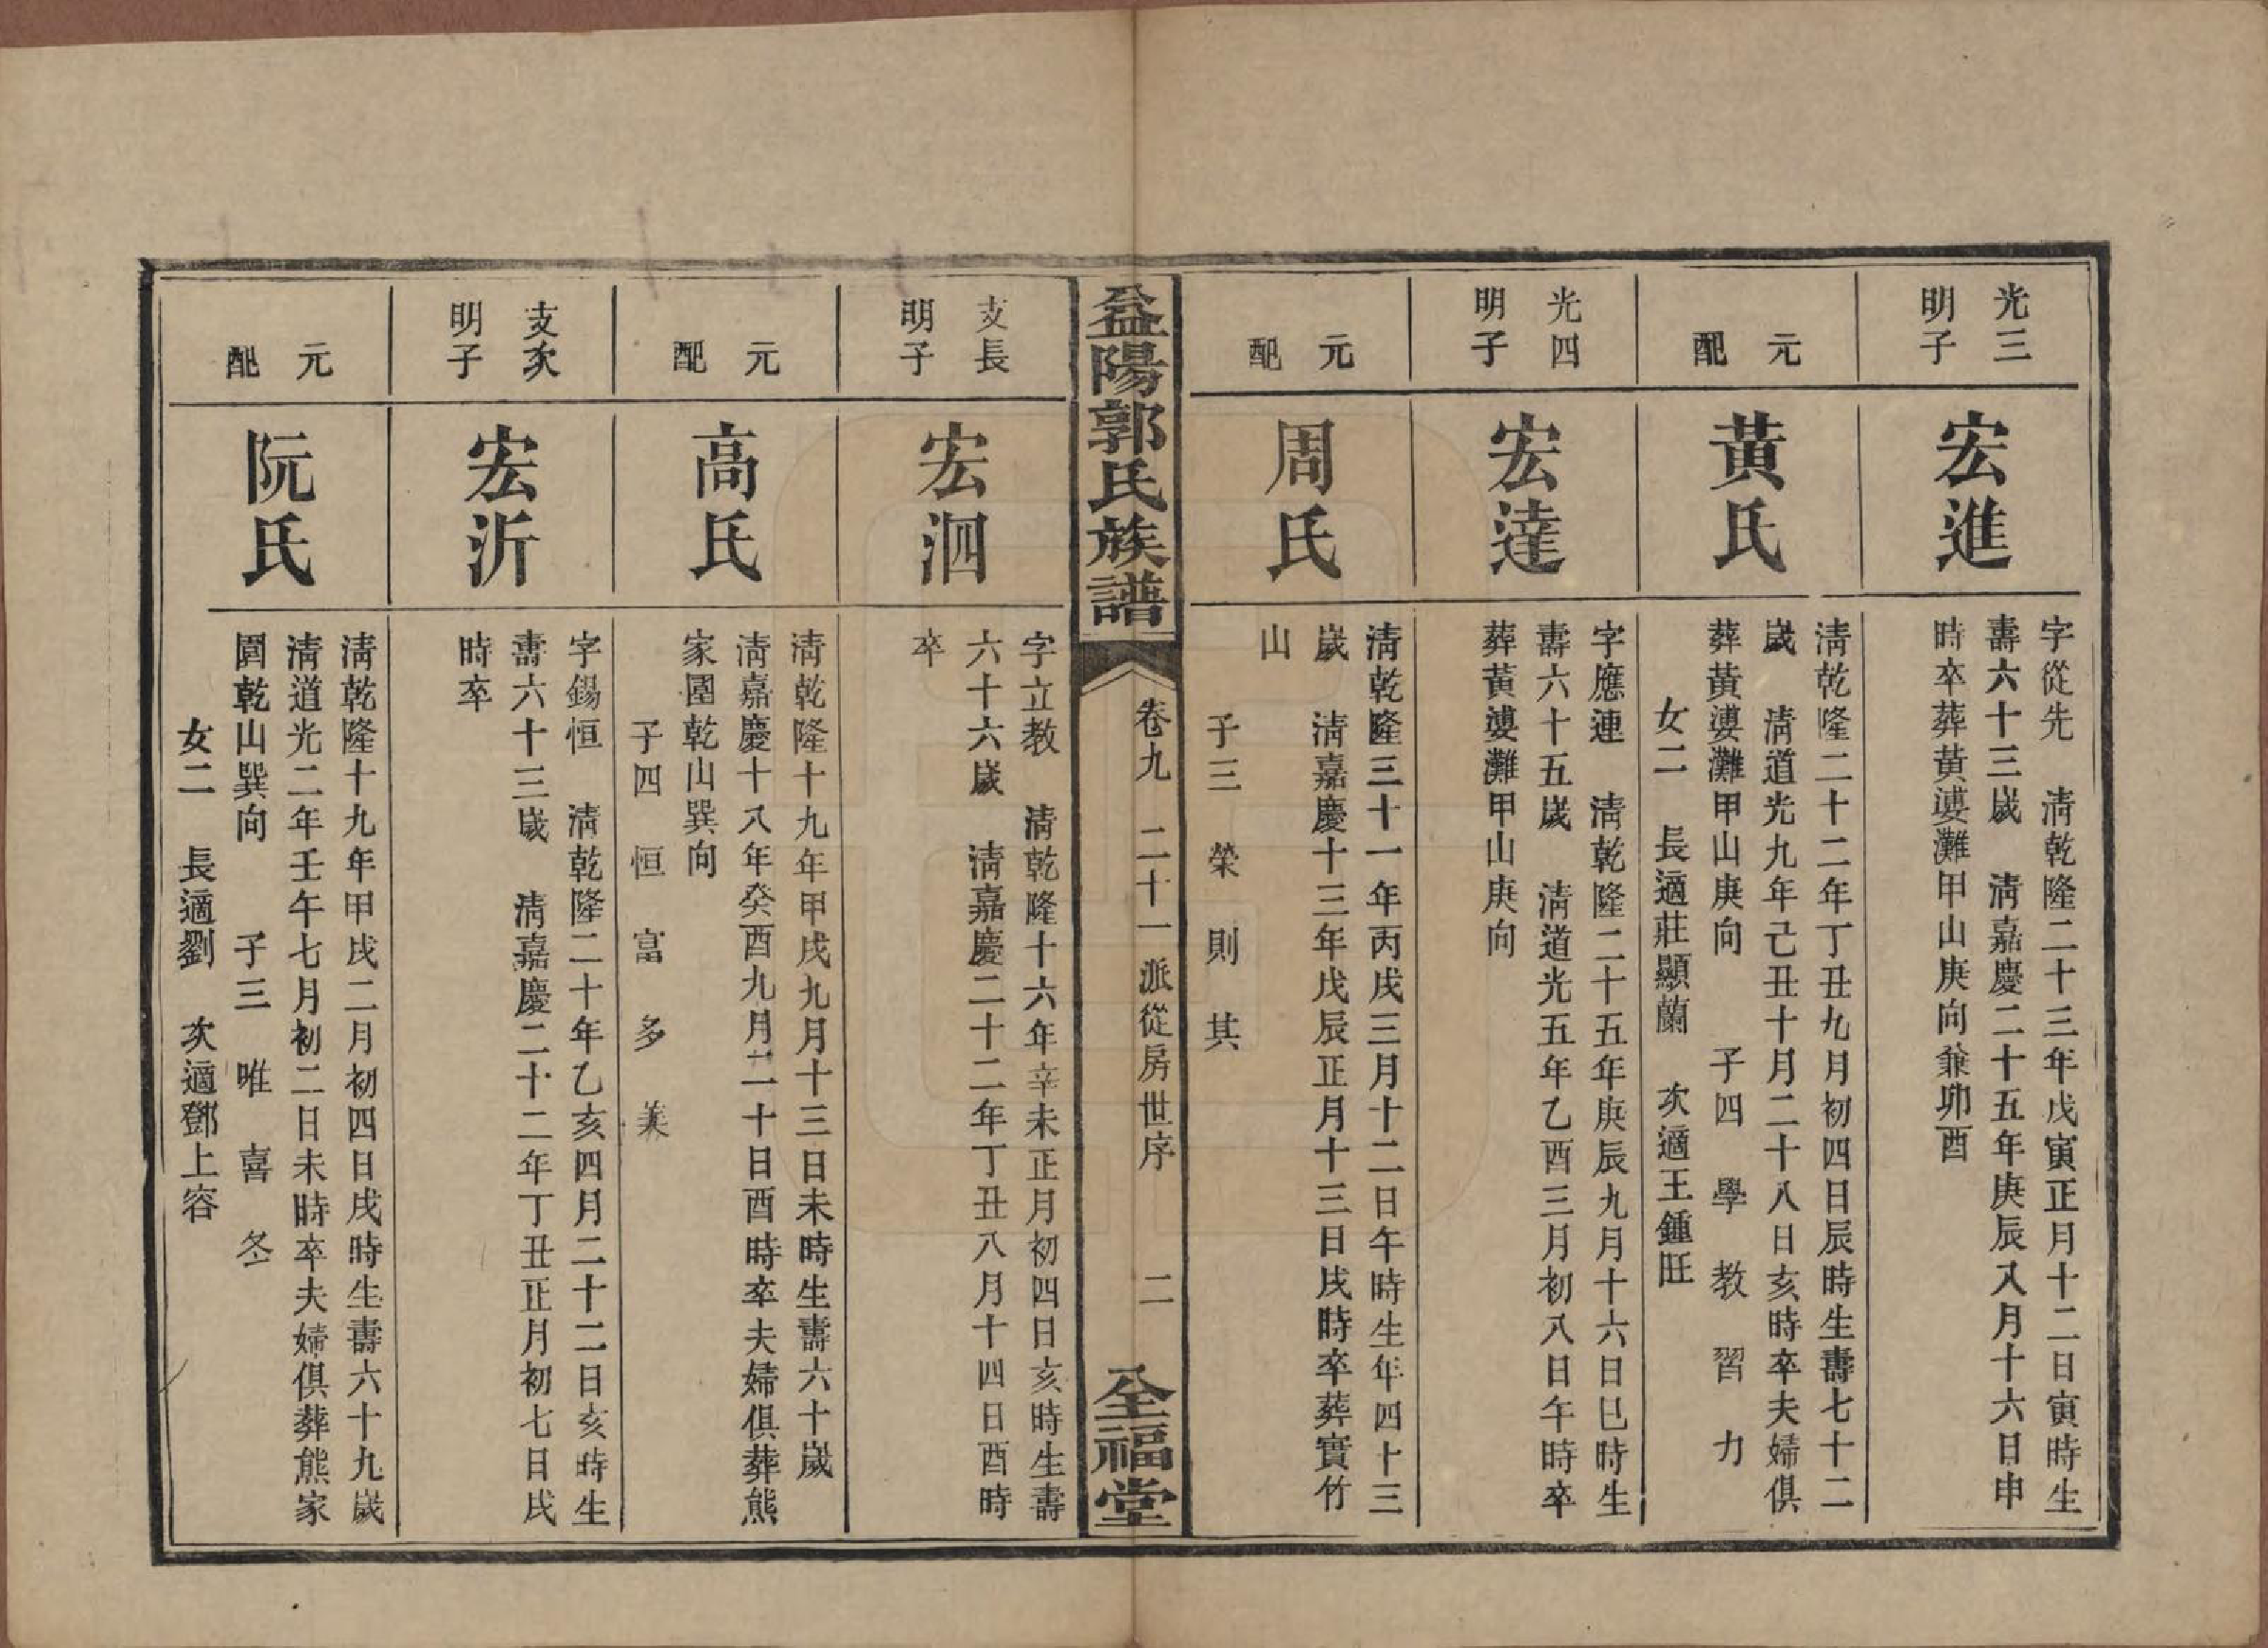 光三
明子
宏進
字從先　清乾隆二十三年戊寅正月十二日寅時生
壽六十三歲　清嘉慶二十五年庚辰八月十六日申
時卒葬黃婆灘甲山庚向兼卯酉
元
配
黃氏
清乾隆二十二年丁丑九月初四日辰時生壽七十二
歲　清道光九年己丑十月二十八日亥時卒夫婦俱
葬黃婆灘甲山庚向　子四　學　教　習　力
女二　長適莊顯蘭　次適王鍾旺
光四
明子
宏達
字應連　清乾隆二十五年庚辰九月十六日巳時生
壽六十五歲　清道光五年乙酉三月初八日午時卒
葬黃婆灘甲山庚向
元
配
周氏
清乾隆三十一年丙戌三月十二日午時生年四十三
歲　清嘉慶十三年戊辰正月十三日戌時卒葬實竹
山
子三　榮　則　其
益陽郭氏族譜
卷九　二十一派從房世序　二
全福堂
支長
明子
宏泗
字立教　清乾隆十六年辛未正月初四日亥時生壽
六十六歲　清嘉慶二十二年丁丑八月十四日酉時
卒
元
配
高氏
清乾隆十九年甲戌九月十三日未時生壽六十歲
清嘉慶十八年癸酉九月二十日酉時卒夫婦俱葬熊
家園乾山巽向
子四　恒　富　多　美
支次
明子
宏沂
字錫恒　清乾隆二十年乙亥四月二十二日亥時生
壽六十三歲　清嘉慶二十二年丁丑正月初七日戌
時卒
元
配
阮氏
清乾隆十九年甲戌二月初四日戌時生壽六十九歲
清道光二年壬午七月初二日未時卒夫婦俱葬熊家
園乾山巽向　子三　唯　喜　冬
女二　長適劉　次適鄧上容